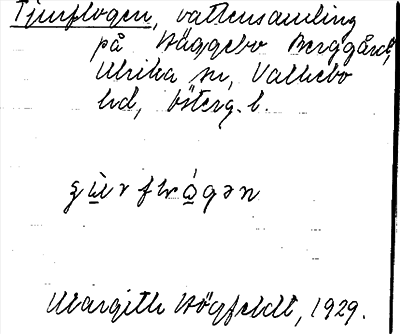 Tjurflogen, vattensamling
på Häggebo Berggård,
Ulrika sn, Valkebo
hd, Österg. l.
Margith Högfeldt, 1929.